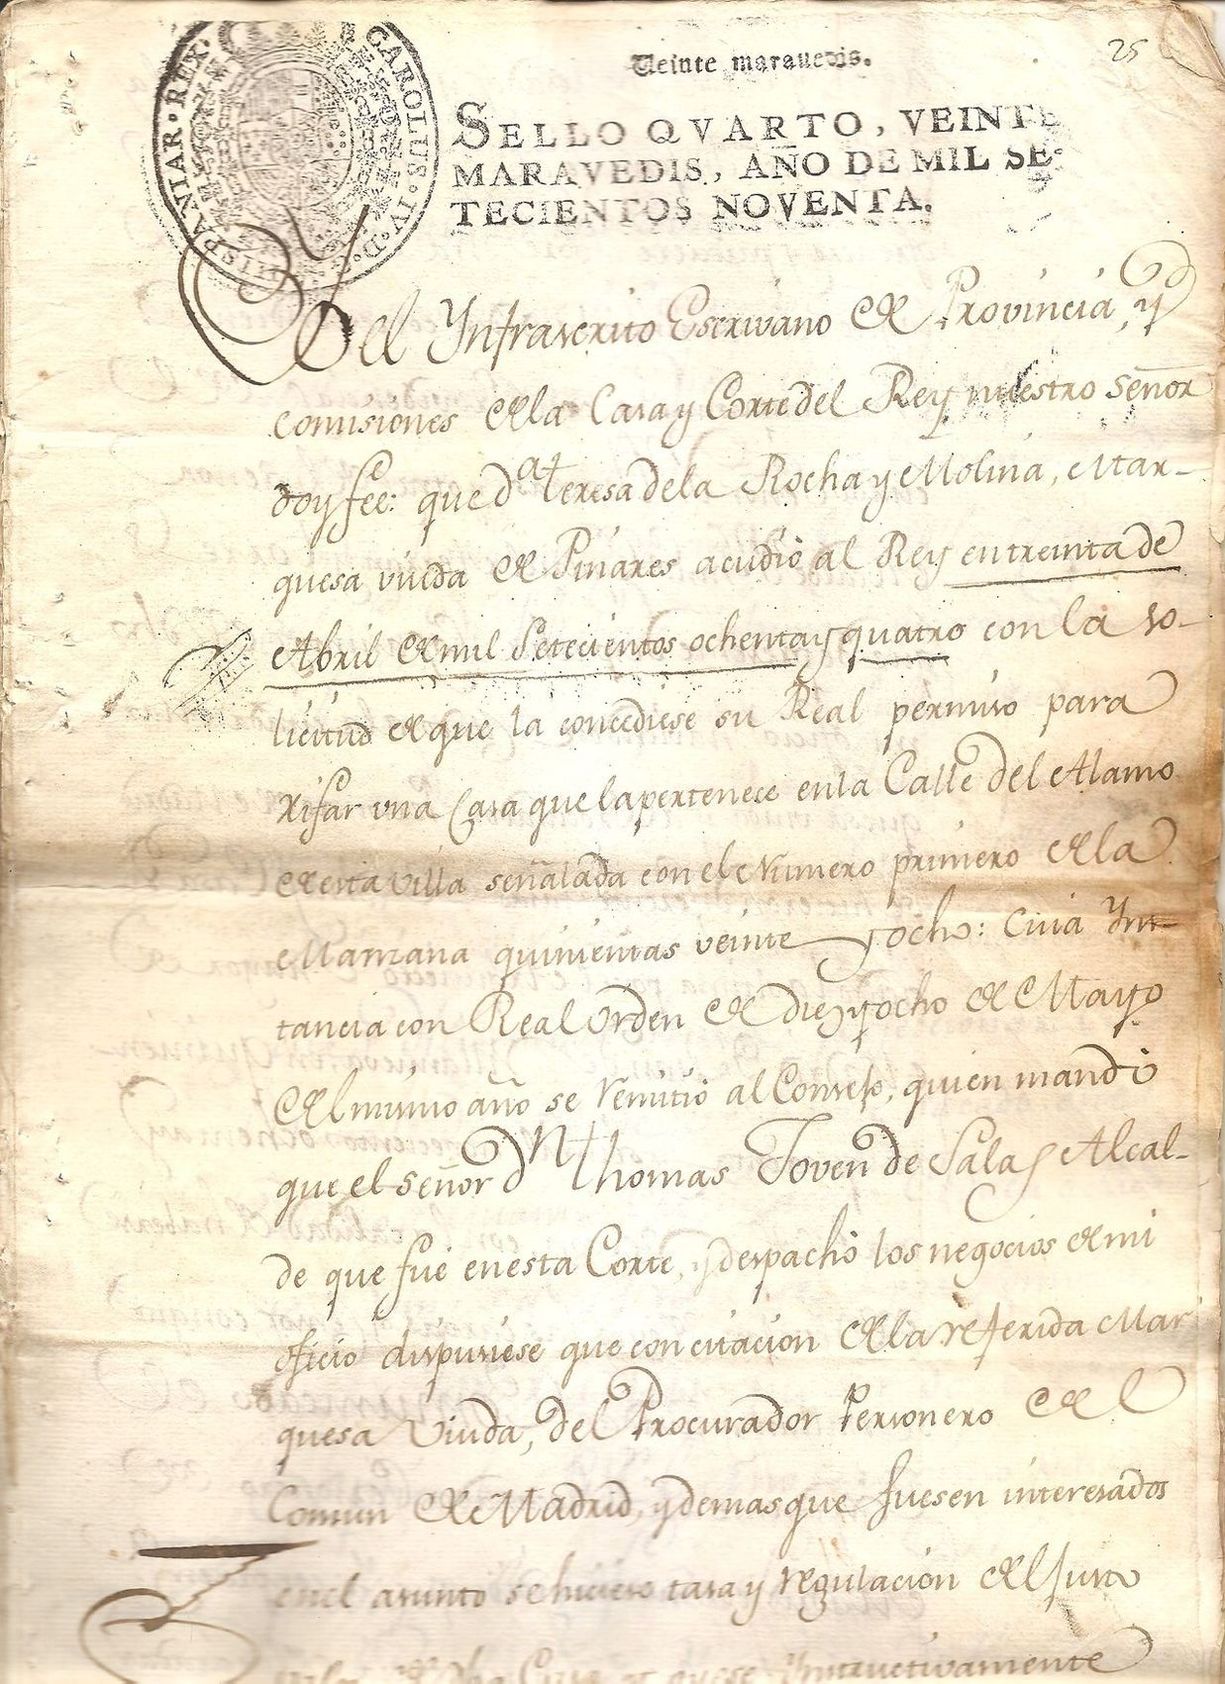 25
Veinte maravedis.
CAROLUS·IV·D·
HISPANIAR·REX·
SELLO QVARTO, VEINTE
MARAVEDIS, AÑO DE MIL SE-
TECIENTOS NOVENTA.
Yo el Ynfrascrito Escrivano de Provincia, y
comisiones de la Casa y Corte del Rey nuestro señor
doy fee: que Dª Teresa de la Rocha y Molina, Mar-
quesa viuda de Pinares acudiò al Rey en treinta de
Abril de mil setecientos ochenta y quatro con la so-
licitud de que la concediese su Real permiso para
rifar una Casa que la pertenece en la Calle del Alamo
de esta villa señalada con el Numero primero de la
Manzana quinientas veinte y ocho: cuia Yns-
tancia con Real Orden de diez y ocho de Mayo
del mismo año se remitiò al Consejo, quien mandò
que el señor Dn Thomas Joven de Salas Alcal-
de que fue en esta Corte, y despachò los negocios de mi
oficio dispusiese que con citacion de la referida Mar
quesa Viuda, del Procurador Personero del
Comun de Madrid, y demas que fuesen interesados
en el asunto se hiciese tasa y regulacion del justo
de dha Casa Ynstructivamente